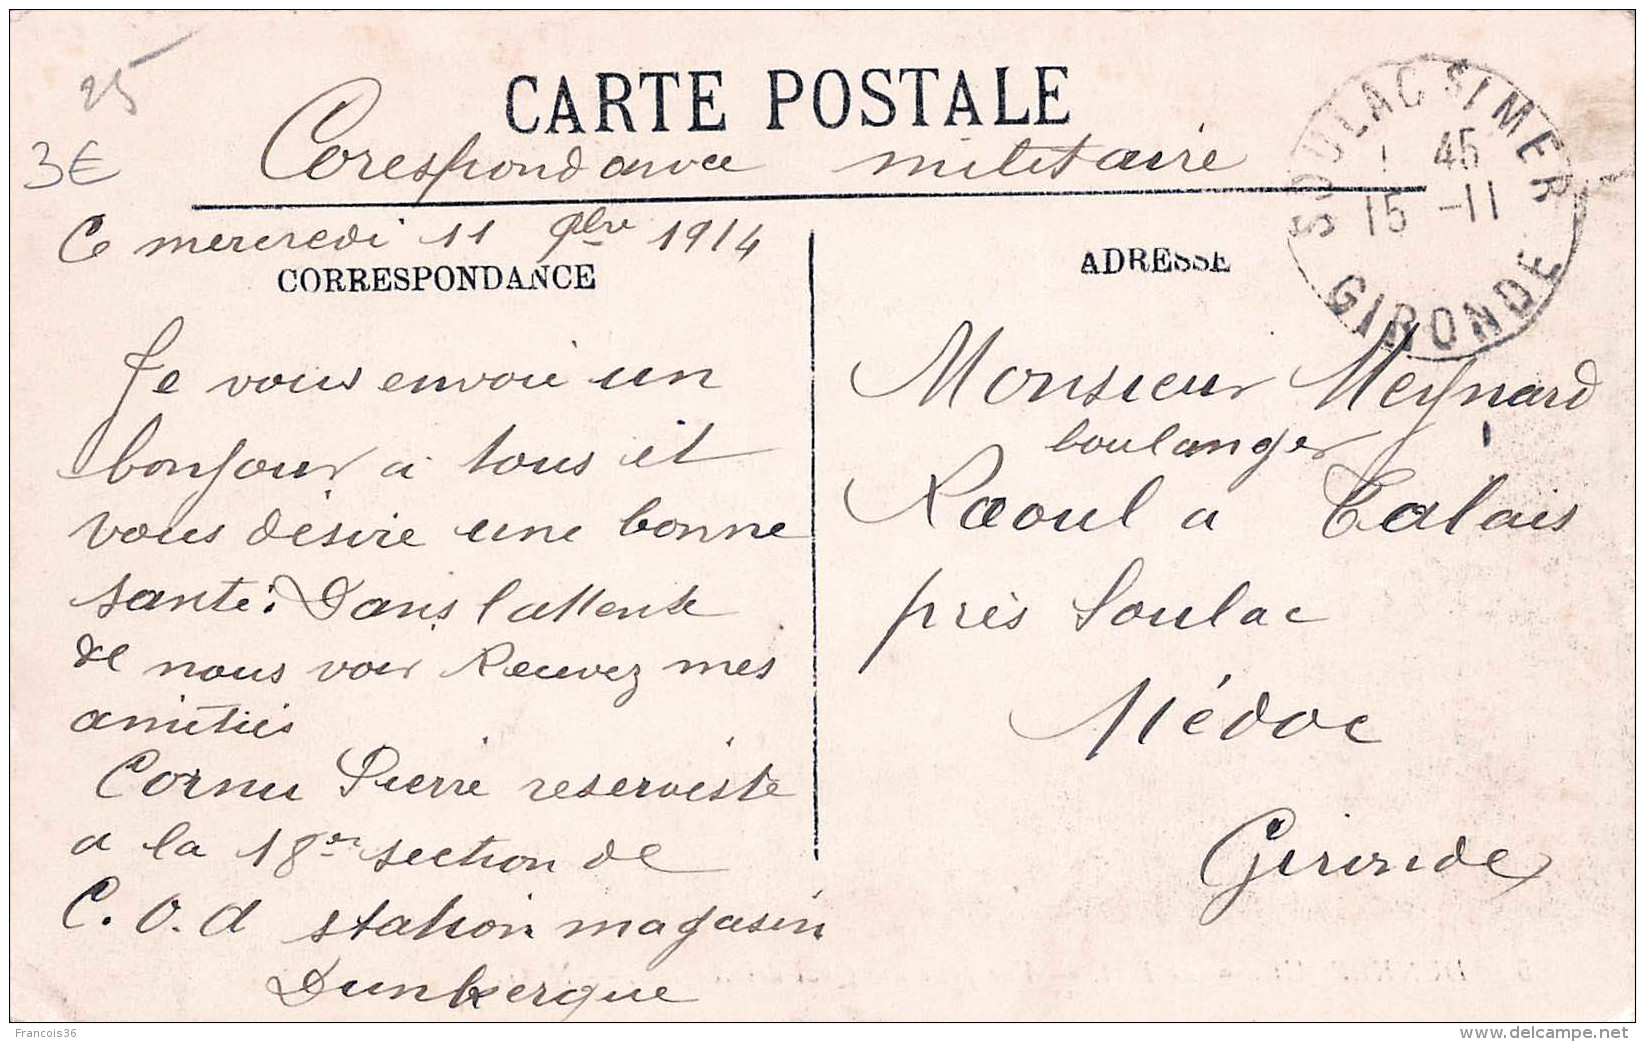 25
3€
CARTE POSTALE
Corespondance militaire
SOULAC S/ MER
45
15 -11
GIRONDE
Ce mercredi 11 9bre 1914
CORRESPONDANCE
Je vous envoie un
bonjour a tous et
vous désire une bonne
santé. Dans l'attente
de nous voir Recuvez mes
amitiés
Cornu Pierre reserviste
a la 18em section de
C. O. A station magasin
Dunkerque
ADRESSE
Monsieur Meynard
boulanger
Raoul a Talais
près Soulac
Médoc
Gironde
Francois36
www.delcampe.net